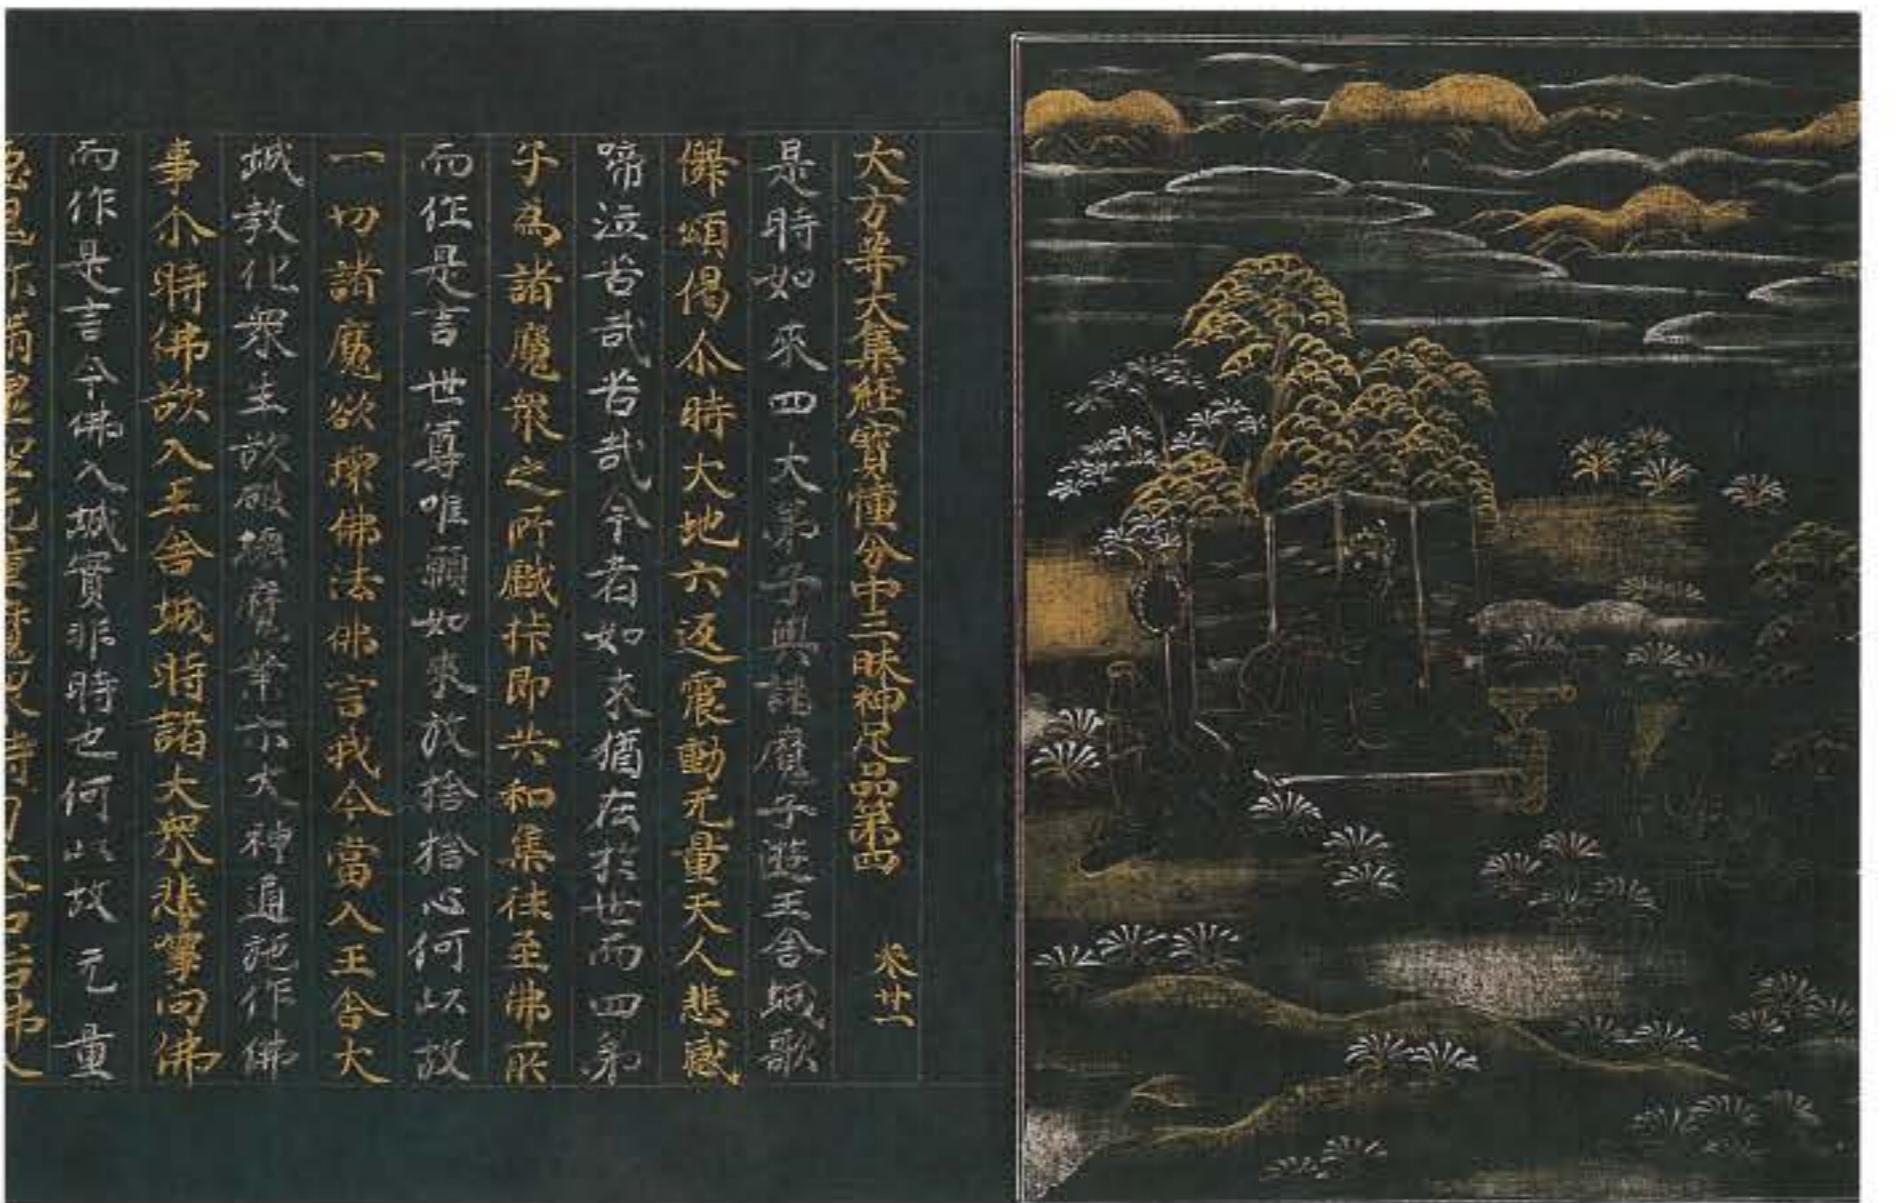 大方等大集經寶憧分中三昧神足品第四 卷廿一
是時如來四大弟子與諸魔子遊王舍城歌
儛頌偈尒時大地六返震動无量天人悲感
啼泣苦哉苦哉今者如來猶在於世而四弟
子為諸魔衆之所戲弄即共和集往至佛所
而作是言世尊唯願如來放捨捨心何以故
一切諸魔欲壞佛法佛言我今當入王舍大
城教化衆生欲破壞魔業示大神通施作佛
事尒時佛欲入王舍城時諸大衆悲寧向佛
而作是言今佛入城實非時也何以故无量